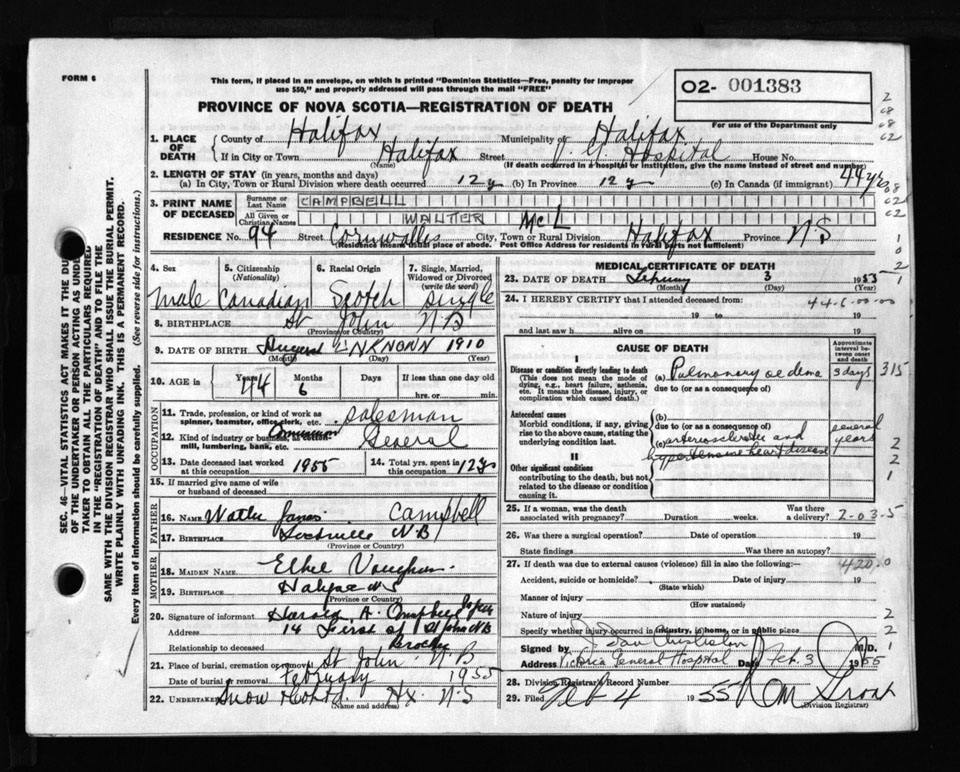 FORM 6
This form, if placed in an envelope, on which is printed "Dominion Statistics—Free, penalty for improper
use $50," and properly addressed will pass through the mail "FREE"
O2- 001383
PROVINCE OF NOVA SCOTIA—REGISTRATION OF DEATH
For use of the Department only
1. PLACE OF DEATH { County of Halifax Municipality of Halifax
If in City or Town Halifax Street V. G. Hospital House No.
(Name) (If death occurred in a hospital or institution, give the name instead of street and number)
2. LENGTH OF STAY (in years, months and days)
(a) In City, Town or Rural Division where death occurred 12 y (b) In Province 12 y (c) In Canada (if immigrant) 44 yrs
3. PRINT NAME OF DECEASED { Surname or Last Name CAMPBELL
All Given or Christian Names WALTER McL
RESIDENCE No. 94 Street Cornwallis City, Town or Rural Division Halifax Province N.S
(Residence means usual place of abode. Post Office Address for residents in rural parts not sufficient)
4. Sex
male
5. Citizenship (Nationality)
Canadian
6. Racial Origin
Scotch
7. Single, Married, Widowed or Divorced (write the word)
single
8. BIRTHPLACE St John N.B
(Province or Country)
9. DATE OF BIRTH August UNKNOWN 1910
(Month) (Day) (Year)
10. AGE in { Years 44 Months 6 Days If less than one day old
hrs. or min.
OCCUPATION
11. Trade, profession, or kind of work as
spinner, teamster, office clerk, etc. salesman
12. Kind of industry or business, as cotton
mill, lumbering, bank, etc. General
13. Date deceased last worked at this occupation 1955
14. Total yrs. spent in this occupation 12 yrs
15. If married give name of wife
or husband of deceased
FATHER
16. NAME Walter James Campbell
17. BIRTHPLACE Sackville N.B
(Province or Country)
MOTHER
18. MAIDEN NAME Ethel Vaughan
19. BIRTHPLACE Halifax N.S
(Province or Country)
20. Signature of informant Harold A. Campbell
Address 14 First St St John N.B
Relationship to deceased Brother
21. Place of burial, cremation or removal St John N.B
Date of burial or removal February 1955
22. Undertaker Snow & Co Ltd. Hx. N.S
(Name and address)
MEDICAL CERTIFICATE OF DEATH
23. DATE OF DEATH 3 1955
(Month) (Day) (Year)
24. I HEREBY CERTIFY that I attended deceased from: 44-6-00-00
19 to 19
and last saw h alive on 19
CAUSE OF DEATH
Approximate interval between onset and death
I
Disease or condition directly leading to death
(This does not mean the mode of
dying, e.g., heart failure, asthenia,
etc. It means the disease, injury, or
complication which caused death.)
(a) Pulmonary oedema 3 days 315
due to (or as a consequence of)
Antecedent causes
Morbid conditions, if any, giving
rise to the above cause, stating the
underlying condition last.
(b)
due to (or as a consequence of)
(c) arteriosclerotic and
hypertensive heart disease
several years
II
Other significant conditions
contributing to the death, but not
related to the disease or condition
causing it.
25. If a woman, was the death Was there
associated with pregnancy? Duration weeks. a delivery? 2-03-5
26. Was there a surgical operation? Date of operation 19
State findings Was there an autopsy?
27. If death was due to external causes (violence) fill in also the following: 420.0
Accident, suicide or homicide? Date of injury 19
(State which)
Manner of injury
(How sustained)
Nature of injury
Specify whether injury occurred in industry, in home, or in public place
Signed by M.D.
Address Victoria General Hospital Date Feb. 3 1955
28. Division Registrar's Record Number
29. Filed Feb 4 1955
Division Registrar
SEC. 46—VITAL STATISTICS ACT MAKES IT THE DUTY
OF THE UNDERTAKER OR PERSON ACTING AS UNDER-
TAKER TO OBTAIN ALL THE PARTICULARS REQUIRED
IN THE "REGISTRATION OF DEATH" AND TO FILE THE
SAME WITH THE DIVISION REGISTRAR WHO SHALL ISSUE THE BURIAL PERMIT.
WRITE PLAINLY WITH UNFADING INK. THIS IS A PERMANENT RECORD.
Every item of information should be carefully supplied. (See reverse side for instructions.)